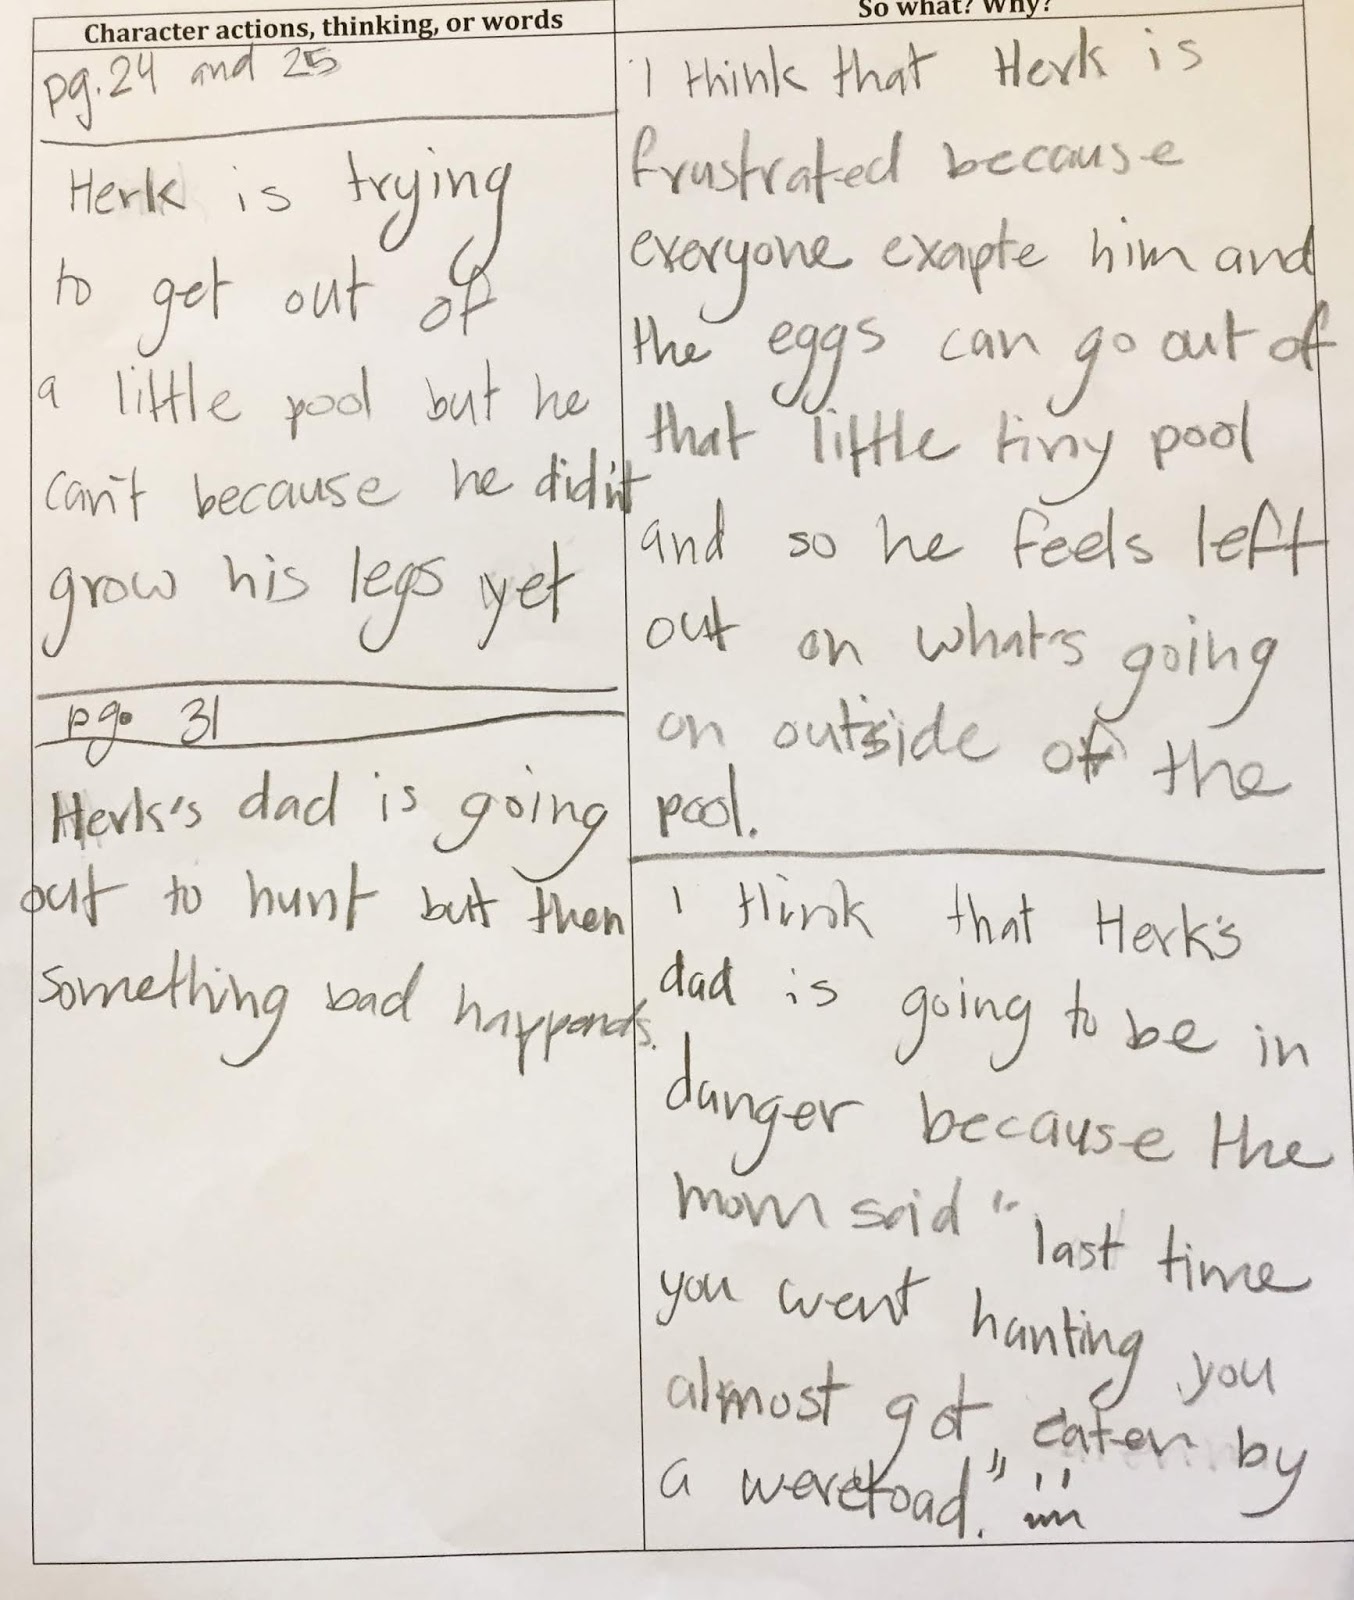 Character actions, thinking, or words
pg. 24 and 25
Herk is trying
to get out of
a little pool but he
can't because he didn't
grow his legs yet
pg. 31
Herk's dad is going
out to hunt but then
something bad happends.
So what? Why?
I think that Herk is
frustrated because
everyone exapte him and
the eggs can go out of
that little tiny pool
and so he feels left
out on what's going
on outside of the
pool.
I think that Herk's
dad is going to be in
danger because the
mom said " last time
you went hanting you
almost got eaten by
a weretoad."